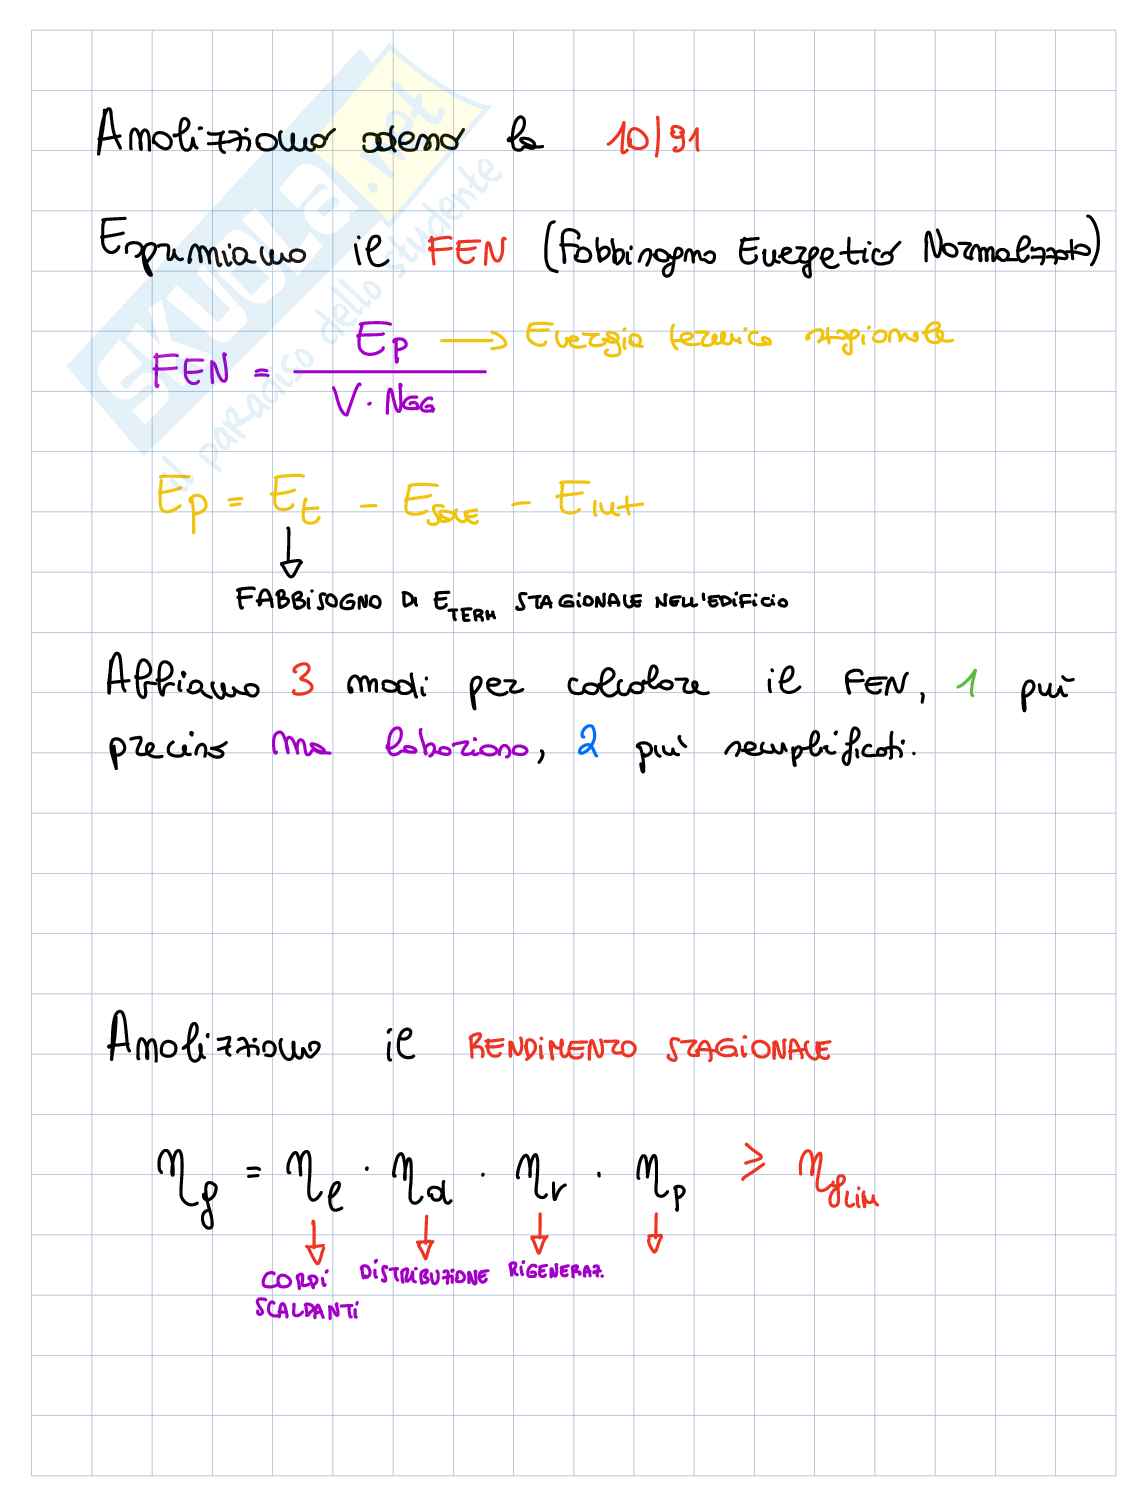 Analizziamo adesso la 10/91
Esprimiamo il FEN (Fabbisogno Energetico Normalizzato)
FEN = Ep / (V · NGG) → Energia termica stagionale
Ep = Et - ESOLE - Eint
↓
FABBISOGNO DI ETERM STAGIONALE NELL'EDIFICIO
Abbiamo 3 modi per calcolare il FEN, 1 più
preciso ma laborioso, 2 piu' semplificati.
Analizziamo il RENDIMENTO STAGIONALE
ηg = ηe · ηd · ηr · ηp ≥ ηgLIM
↓ ↓ ↓ ↓
CORPI SCALDANTI DISTRIBUZIONE RIGENERAZ.
SKUOLA.net
il paradiso dello studente